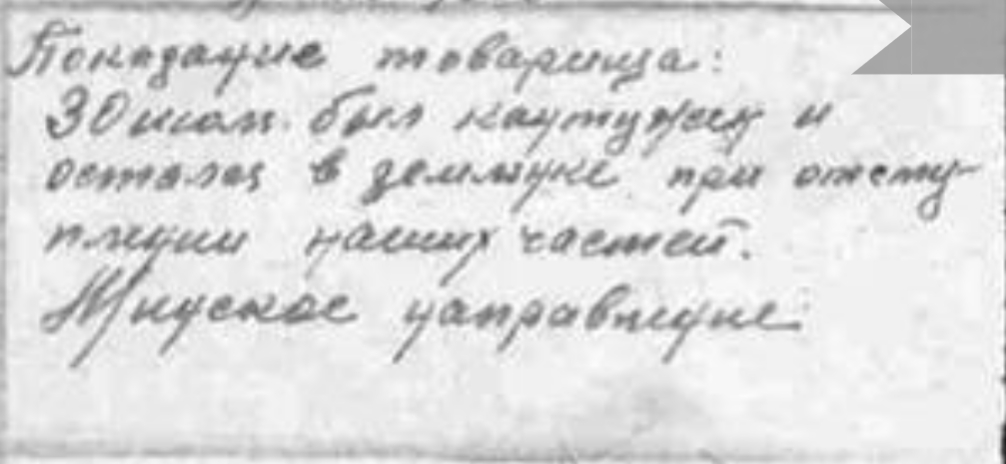 Показание товарища:
30 июл. был контужен и
остался в землянке при отсту-
плении наших частей.
Минское направление